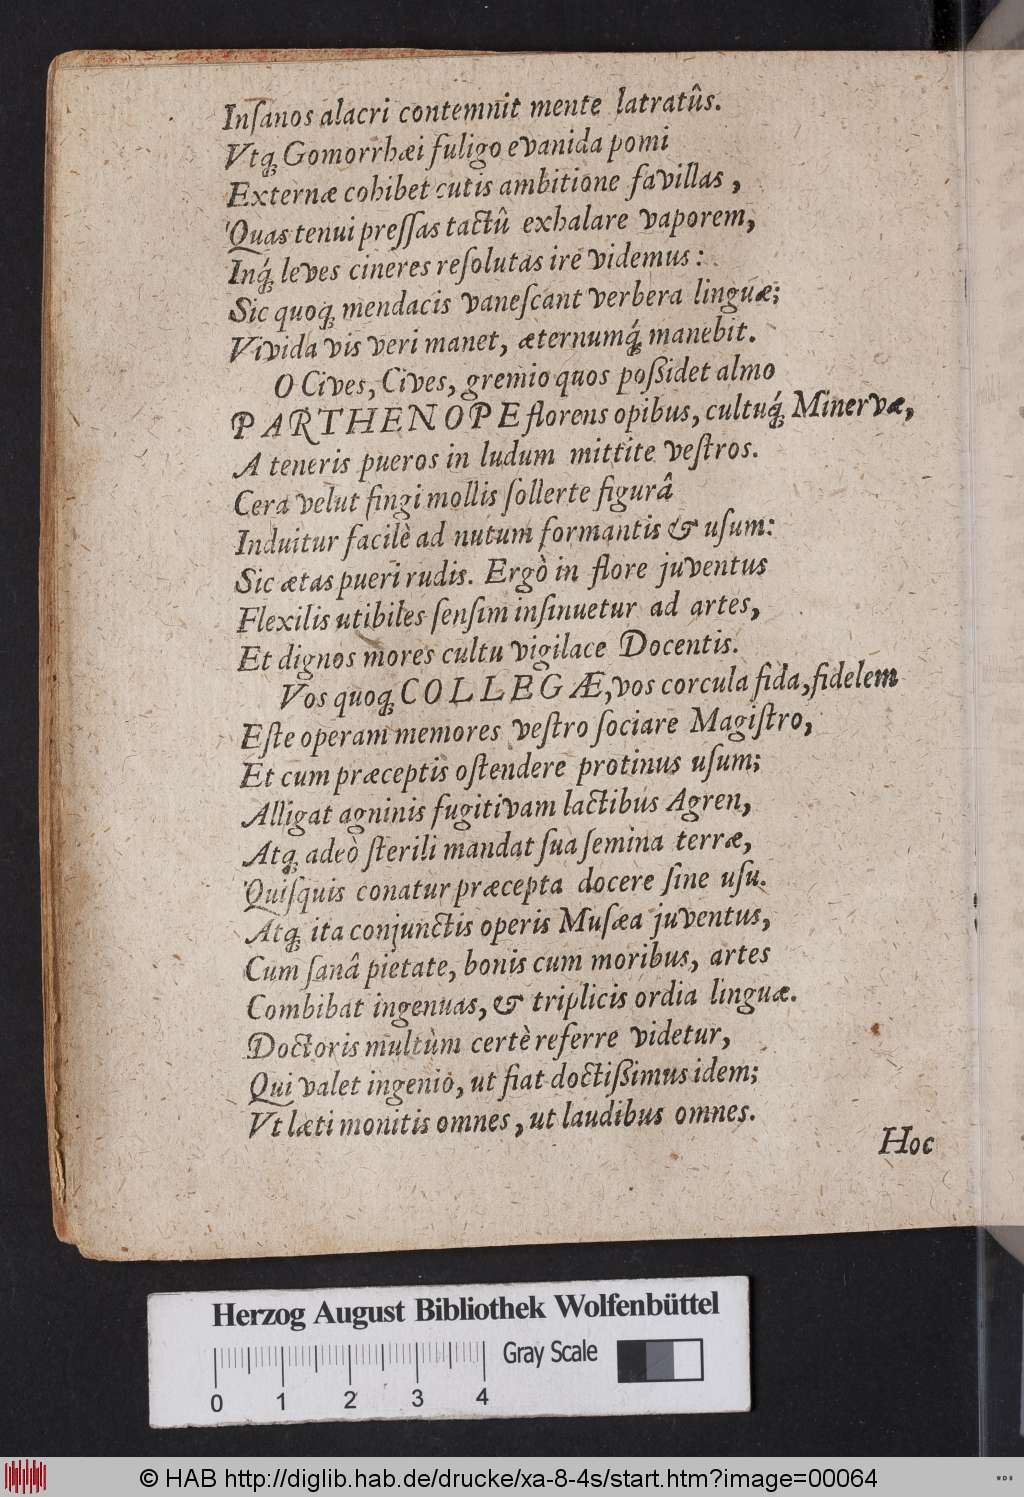 Inſanos alacri contemnit mente latratûs.
Vtq́ꝫ Gomorrhæi fuligo evanida pomi
Externæ cohibet cutis ambitione favillas,
Quas tenui preſſas tactû exhalare vaporem,
Inq́ꝫ leves cineres reſolutas ire videmus:
Sic quoqꝫ mendacis vaneſcant verbera linguæ;
Vivida vis veri manet, æternumq́ꝫ manebit.
O Cives, Cives, gremio quos poßidet almo
PARTHENOPE florens opibus, cultuq́ꝫ Minervæ,
A teneris pueros in ludum mittite veſtros.
Cera velut fingi mollis ſollerte figurâ
Induitur facilè ad nutum formantis & uſum:
Sic ætas pueri rudis. Ergò in flore juventus
Flexilis utibiles ſenſim inſinuetur ad artes,
Et dignos mores cultu vigilace Docentis.
Vos quoqꝫ COLLEGÆ, vos corcula fida, fidelem
Eſte operam memores veſtro ſociare Magiſtro,
Et cum præceptis oſtendere protinus uſum;
Alligat agninis fugitivam lactibus Agren,
Atqꝫ adeò ſterili mandat ſua ſemina terræ,
Quiſquis conatur præcepta docere ſine uſu.
Atqꝫ ita conjunctis operis Muſæa juventus,
Cum ſanâ pietate, bonis cum moribus, artes
Combibat ingenuas, & triplicis ordia linguæ.
Doctoris multùm certè referre videtur,
Qui valet ingenio, ut fiat doctißimus idem;
Vt læti monitis omnes, ut laudibus omnes.
Hoc
Herzog August Bibliothek Wolfenbüttel
Gray Scale
0 1 2 3 4
© HAB http://diglib.hab.de/drucke/xa-8-4s/start.htm?image=00064